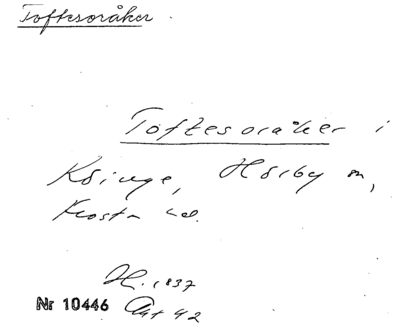 Toftesoråker.
Toftesoråker i
Köinge, Hörby sn,
Frosta hd.
H. 1837
Nr 10446 Akt 42